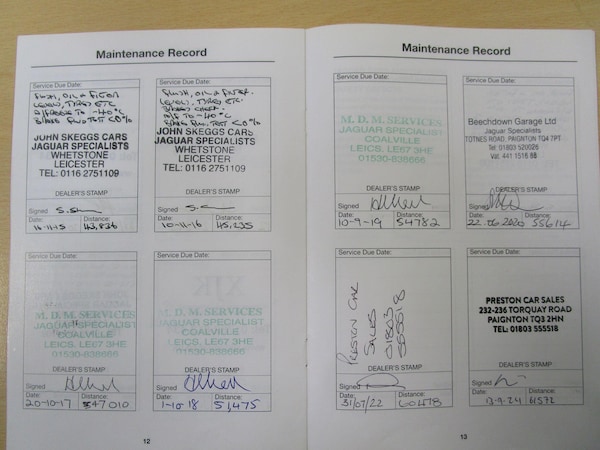 Maintenance Record
Service Due Date:
FLUSH, OIL & FILTER
LEVEL, TYRES ETC
A/FREEZE TO -40°C
BRAKE FLUID TEST <0%
JOHN SKEGGS CARS
JAGUAR SPECIALISTS
WHETSTONE
LEICESTER
TEL: 0116 2751109
DEALER'S STAMP
Signed
Date: Distance:
16-11-15 43,836
Service Due Date:
FLUSH, OIL & FILTER.
LEVEL, TYRES ETC.
BRAKES CHECK.
A/F TO -40°C
BRAKE FLU. TEST <0%
JOHN SKEGGS CARS
JAGUAR SPECIALISTS
WHETSTONE
LEICESTER
TEL: 0116 2751109
DEALER'S STAMP
Signed
Date: Distance:
10-11-16 45,235
Service Due Date:
M. D. M. SERVICES
JAGUAR SPECIALIST
COALVILLE
LEICS. LE67 3HE
01530-838666
DEALER'S STAMP
Signed
Date: Distance:
20-10-17 47010
Service Due Date:
M. D. M. SERVICES
JAGUAR SPECIALIST
COALVILLE
LEICS. LE67 3HE
01530-838666
DEALER'S STAMP
Signed
Date: Distance:
1-10-18 51,475
12
Maintenance Record
Service Due Date:
M. D. M. SERVICES
JAGUAR SPECIALIST
COALVILLE
LEICS. LE67 3HE
01530-838666
DEALER'S STAMP
Signed
Date: Distance:
10-9-19 54782
Service Due Date:
Beechdown Garage Ltd
Jaguar Specialists
TOTNES ROAD, PAIGNTON TQ4 7PT
Tel: 01803 520026
Vat: 441 1516 88
DEALER'S STAMP
Signed
Date: Distance:
22-06-2020 55614
Service Due Date:
PRESTON CAR
SALES
01803
555518
DEALER'S STAMP
Signed
Date: Distance:
31/07/22 60478
Service Due Date:
PRESTON CAR SALES
232-236 TORQUAY ROAD
PAIGNTON TQ3 2HN
TEL: 01803 555518
DEALER'S STAMP
Signed
Date: Distance:
13-9-24 61572
13